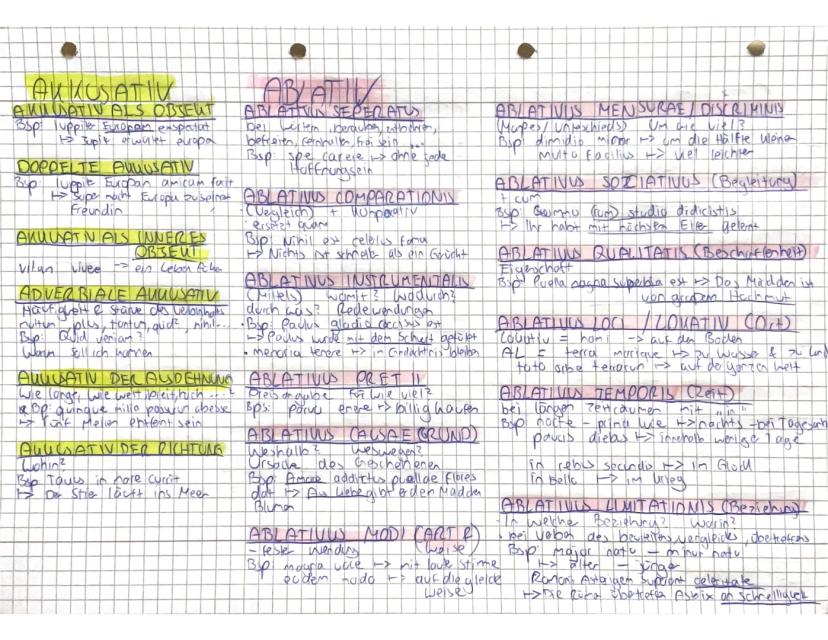 AKKUSATIV
AKKUSATIV ALS OBJEKT
Bsp: Iuppiter Europam exspectat
↳ Jupiter erwartet Europa
DOPPELTE AKKUSATIV
Bsp Iuppite Europam amicam facit
↳ macht Europa zu seiner
Freundin
AKKUSATIV ALS INNERES
OBJEKT
vitam vivere -> ein Leben
ADVERBIALE AKKUSATIV
Häufigkeit & Stärke des Verbinhalts
multum, plus, tantum, quid, nihil...
Bsp: Quid veniam?
Warum soll ich kommen
AKKUSATIV DER AUSDEHNUNG
Wie lange, wie weit, hoch...?
Bsp: quinque milia passuum abesse
↳ fünf Meilen entfernt sein
AKKUSATIV DER RICHTUNG
Wohin?
Bsp Taurus in mare currit
↳ Der Stier läuft ins Meer
ABLATIV
ABLATIVUS SEPERATUS
bei berauben, entbehren,
befreien, fernhalten, frei sein ...
Bsp: spe carere ↦ ohne jede
Hoffnung sein
ABLATIVUS COMPARATIONIS
(Vergleich) + Komparativ
ersetzt quam
Bsp: Nihil est celerius fama
↳ Nichts ist schneller als ein Gerücht
ABLATIVUS INSTRUMENTALIS
(Mittels) womit? wodurch?
durch was? Redewendungen
• Bsp: Paulus gladio occisus est
↳ Paulus wurde mit dem Schwert getötet
• memoria tenere ↦ in Gedächtnis bleiben
ABLATIVUS PRETII
Preisangabe für wie viel?
Bsp: parvo emere ↦ billig kaufen
ABLATIVUS CAUSAE (GRUND)
Weshalb? Weswegen?
Ursache des Geschehenen
Bsp: Amore addictus puellae flores
dat ↦ Aus Liebe gibt er den Mädchen
Blumen
ABLATIVUS MODI (ART &
- fester Wendung Weise)
Bsp: magna voce ↦ mit laute Stimme
eodem modo ↦ auf die gleiche
Weise
ABLATIVUS MENSURAE/DISCRIMINIS
(Maßes/Unterschieds) Um wie viel?
Bsp: dimidio minor ↦ um die Hälfte kleiner
multo facilius ↦ viel leichter
ABLATIVUS SOZIATIVUS (Begleitung)
+ cum
Bsp: Summo (cum) studio didicistis
↳ Ihr habt mit höchstem Eifer gelernt
ABLATIVUS QUALITATIS (Beschaffenheit)
Eigenschaft
Bsp: Puella magna superbia est ↦ Das Mädchen ist
von grossem Hochmut
ABLATIVUS LOCI / LOKATIV (Ort)
Lokativ = homi -> auf den Boden
AL = terra marique ↦ zu Wasser & zu Land
toto orbe terrarum ↦ auf der ganzen Welt
ABLATIVUS TEMPORIS (Zeit)
bei langen Zeiträumen mit "in"
Bsp nocte - prima luce ↦ nachts - bei Tagesanb
paucis diebus ↦ innerhalb wenige Tage
in rebus secundis ↦ im Glück
in bello ↦ im Krieg
ABLATIVUS LIMITATIONIS (Beziehung)
- In welche Beziehung? Worin?
• bei Verben des Vergleiches, übertreffens
Bsp: major natu - minor natu
↳ älter - jünger
Romani celeritate
↳ Die Römer übertreffen an Schnelligkeit